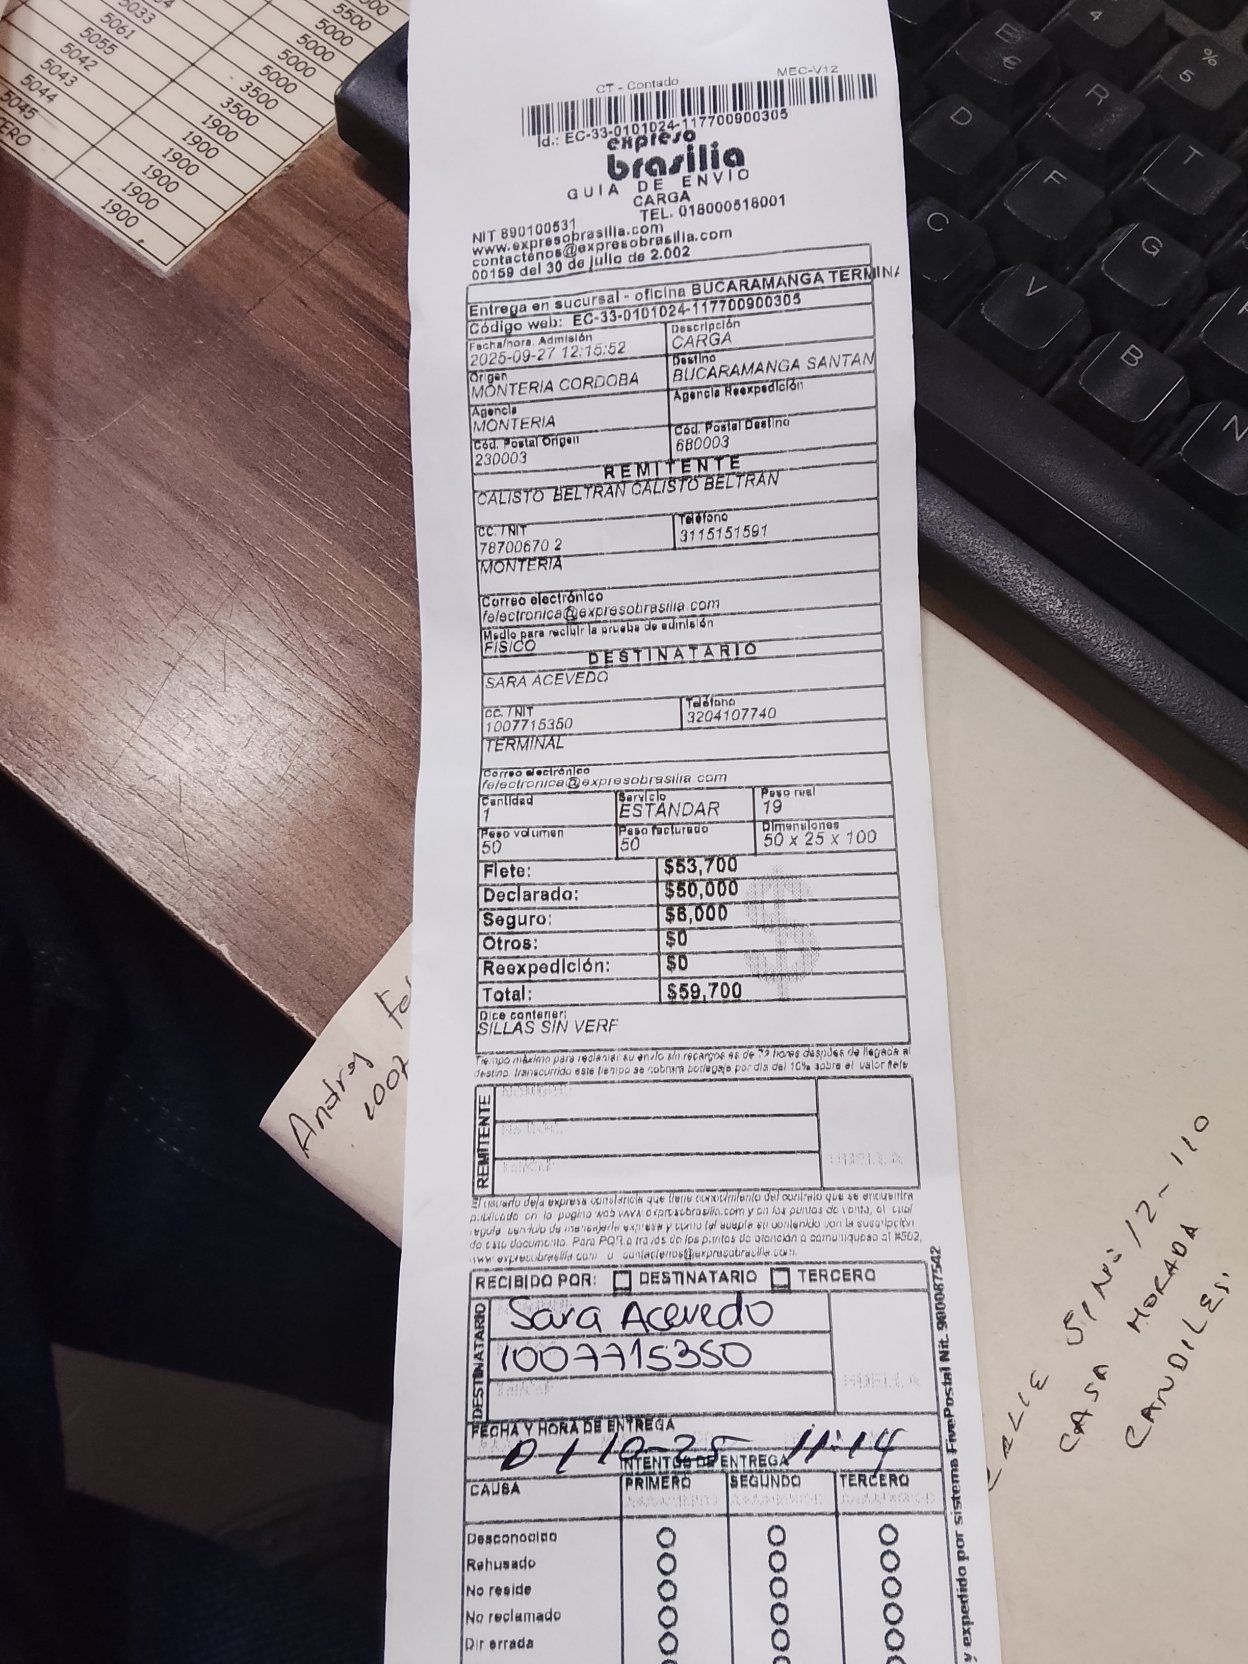 5033
5061
5055
5042
5043
5044
5045
5500
5000
5000
5000
3500
3500
1900
1900
1900
1900
1900
CT - Contado
MEC-V12
Id.: EC-33-0101024-117700900305
expreso
brasilia
GUIA DE ENVIO
CARGA
TEL. 018000518001
NIT 890100531
www.expresobrasilia.com
contactenos@expresobrasilia.com
00159 del 30 de julio de 2.002
Entrega en sucursal - oficina BUCARAMANGA TERMINA
Código web: EC-33-0101024-117700900305
Fecha/hora. Admisión
2025-09-27 12:15:52
Descripción
CARGA
Origen
MONTERIA CORDOBA
Destino
BUCARAMANGA SANTAN
Agencia
MONTERIA
Agencia Reexpedición
Cód. Postal Origen
230003
Cód. Postal Destino
680003
REMITENTE
CALISTO BELTRAN CALISTO BELTRAN
CC. / NIT
78700670 2
Teléfono
3115151591
MONTERIA
Correo electrónico
felectronica@expresobrasilia.com
Medio para recibir la prueba de admisión
FISICO
DESTINATARIO
SARA ACEVEDO
CC. / NIT
1007715350
Teléfono
3204107740
TERMINAL
Correo electrónico
felectronica@expresobrasilia.com
Cantidad
1
Servicio
ESTANDAR
Peso real
19
Peso volumen
50
Peso facturado
50
Dimensiones
50 x 25 x 100
Flete: $53,700
Declarado: $50,000
Seguro: $6,000
Otros: $0
Reexpedición: $0
Total: $59,700
Dice contener:
SILLAS SIN VERF
Tiempo máximo para reclamar su envío sin recargos es de 72 horas después de llegada al
destino, transcurrido este tiempo se cobrará bodegaje por día del 10% sobre el valor flete
REMITENTE
HUELLA
El usuario deja expresa constancia que tiene conocimiento del contrato que se encuentra
publicado en la pagina web www.expresobrasilia.com y en los puntos de venta, el cual
regula servicio de mensajería expresa y como tal acepta su contenido con la suscripción
de este documento. Para PQR a través de los puntos de atención o comuníquese al #502,
www.expresobrasilia.com o contactenos@expresobrasilia.com.
RECIBIDO POR: DESTINATARIO TERCERO
DESTINATARIO
Sara Acevedo
1007715350
HUELLA
FECHA Y HORA DE ENTREGA
01 10-25 11:14
INTENTOS DE ENTREGA
CAUSA PRIMERO SEGUNDO TERCERO
Desconocido
Rehusado
No reside
No reclamado
Dir errada
y expedido por sistema FivePostal Nit. 900087542
Andrey
1007
CALLE
CASA MORADA
CANDILES.
E
€
4
%
5
D
R
F
T
C
G
V
B
N